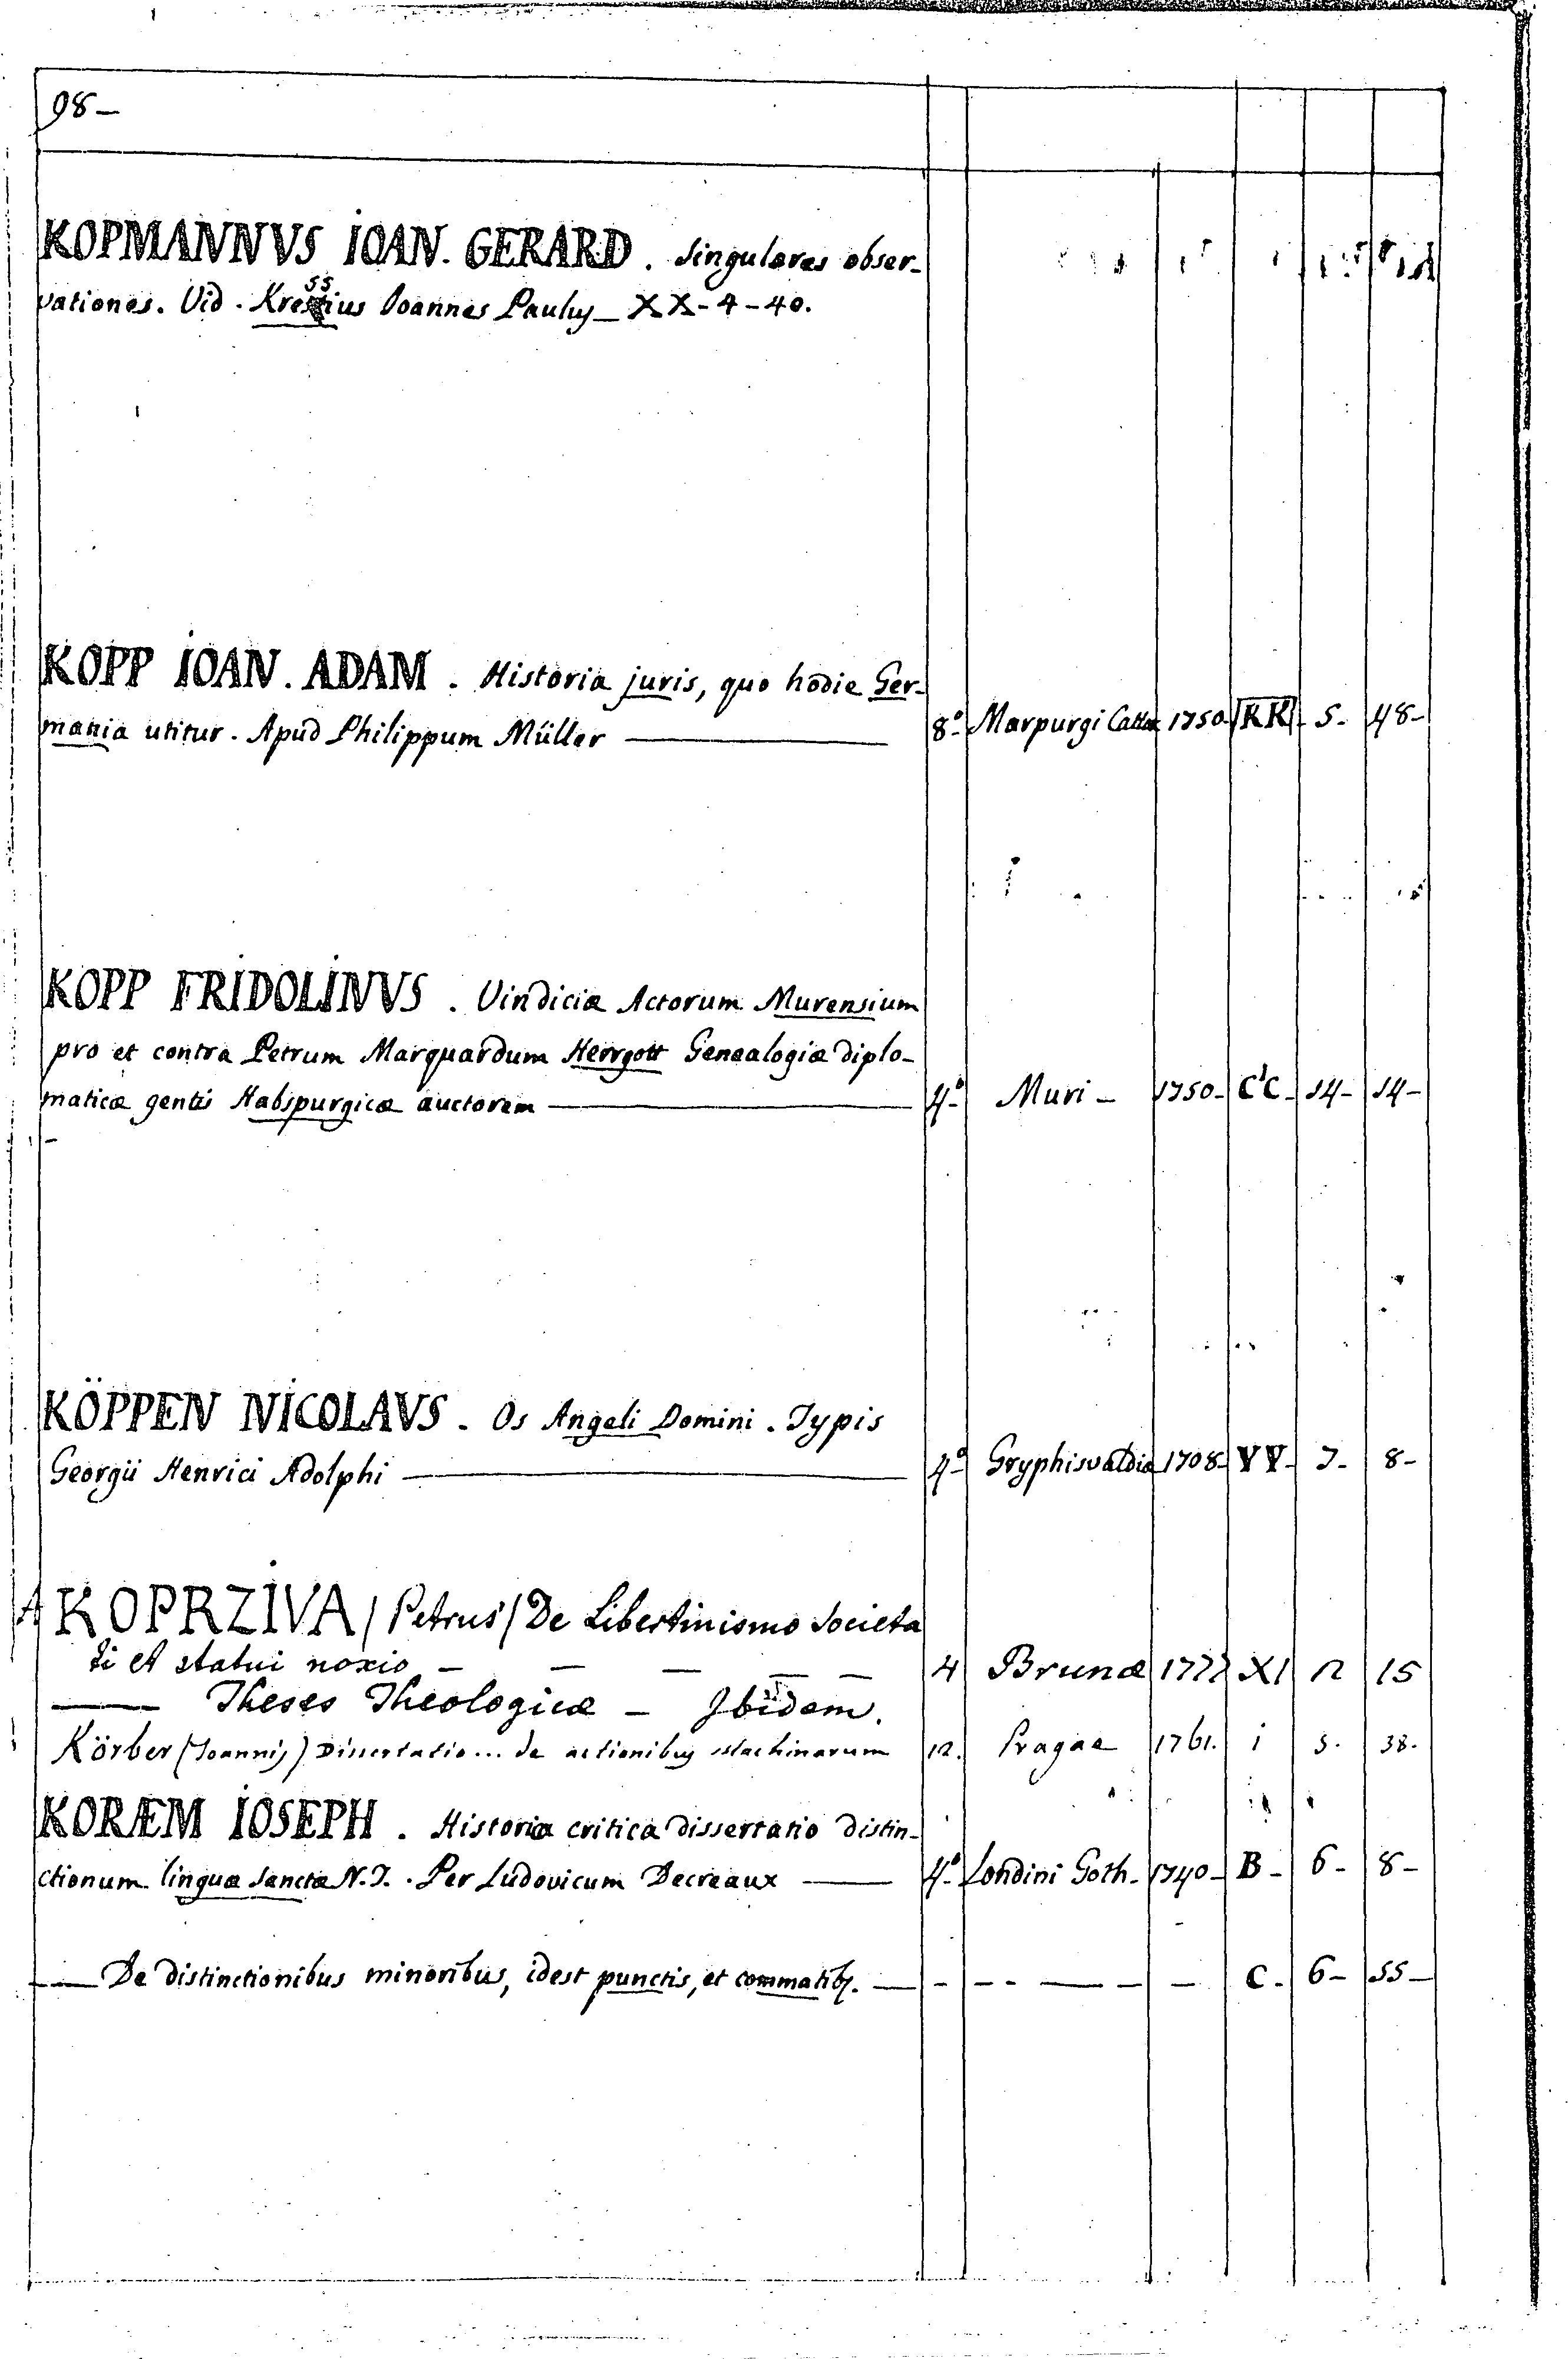 98-
KOPMANNVS IOAN. GERARD. Singulares obser-
vationes. Vid. Kressius Joannes Paulus_ XX-4-40.
KOPP IOAN. ADAM. Historia juris, quo hodie Ger-
mania utitur. Apud Philippum Müller — 8º- Marpurgi Cattor 1750- KK- 5- 48-
KOPP FRIDOLINVS. Vindiciæ Actorum Murensium
pro et contra Petrum Marquardum Herrgott Genealogiæ diplo-
maticæ gentis Habspurgicæ auctorem — 4º- Muri- 1750- CC- 14- 14-
KÖPPEN NICOLAVS. Os Angeli Domini. Typis
Georgii Henrici Adolphi — 4º- Gryphisvaldiæ 1708- VV- 7- 8-
KOPRZIVA /Petrus/ De Libertinismo Societa
ti et statui noxio — — — — — 4 Brunæ 1777 XI 12 15
— Theses Theologicæ — Ibidem.
Körber (Joannis) Dissertatio... de actionibus Machinarum 12. Pragae 1761. i 5. 38.
KORÆM IOSEPH. Historico critica dissertatio distin-
ctionum linguæ Sanctæ N.T.. Per Ludovicum Decreaux — 4º- Londini Goth- 1740- B- 6- 8-
— De distinctionibus minoribus, idest punctis, et commatibq. — - - - — - - C- 6- 55-